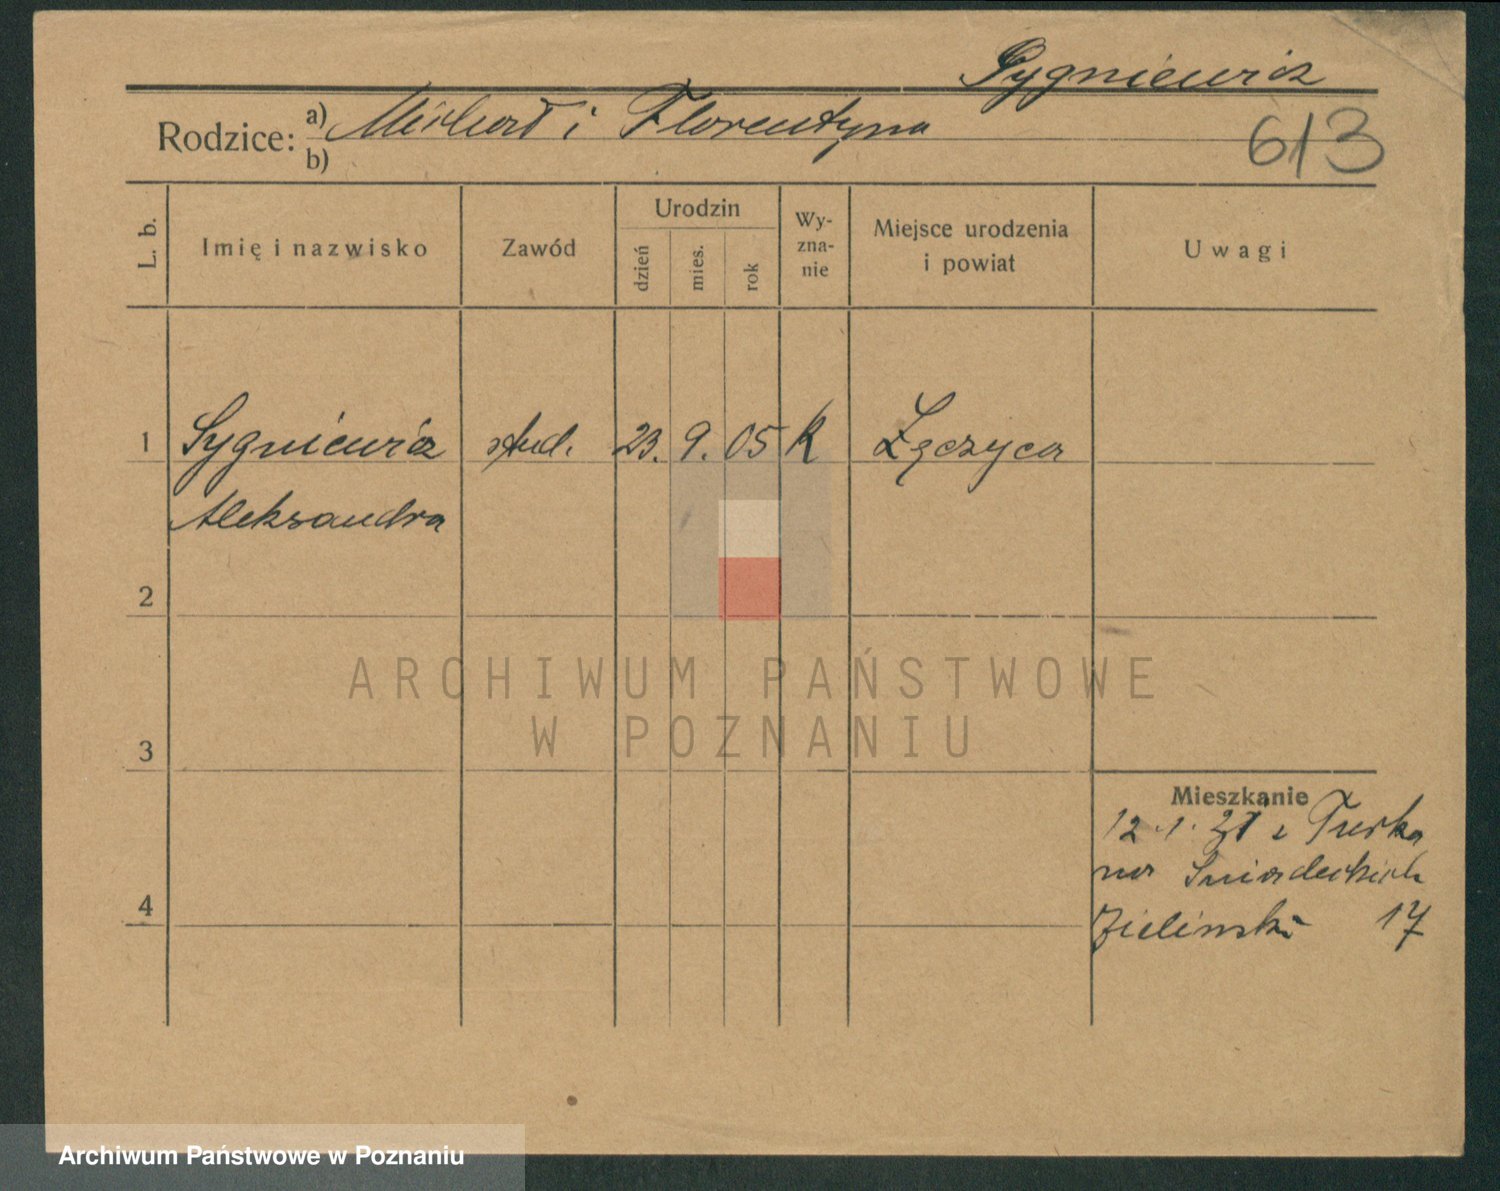 Sygniewicz
Rodzice: a) Michał i Florentyna
b)
613
L. b.
Imię i nazwisko
Zawód
Urodzin
dzień
mies.
rok
Wy-
zna-
nie
Miejsce urodzenia
i powiat
Uwagi
1 Sygniewicz stud. 23. 9. 05 K Łęczyca
Aleksandra
2
ARCHIWUM PAŃSTWOWE
W POZNANIU
3
Mieszkanie
12.1. 31 z Turka
na Śniadeckich
4
Zieliński 17
Archiwum Państwowe w Poznaniu